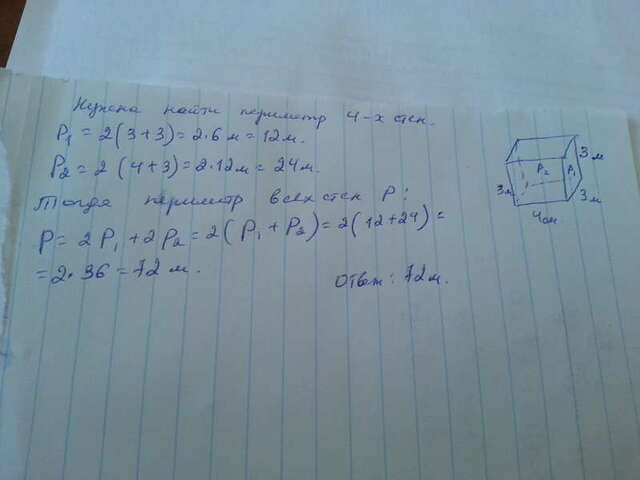 Нужно найти периметр 4-х стен.
P₁ = 2(3+3) = 2·6 м = 12 м.
P₂ = 2 (4+3) = 2·12 м = 24 м.
Тогда периметр всех стен P:
P = 2P₁ + 2P₂ = 2(P₁ + P₂) = 2(12+24) =
= 2·36 = 72 м.
Ответ: 72 м.
3 м
P₂
P₁
3 м
3 м
4 м